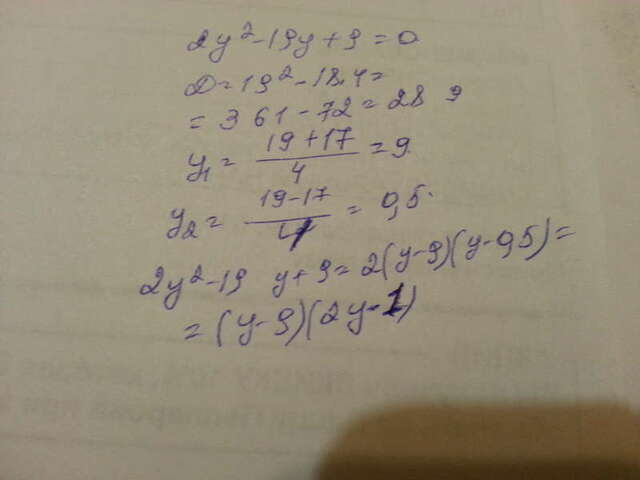 2y²-19y+9=0
D=19²-18·4=
=361-72=289
y₁=(19+17)/4=9
y₂=(19-17)/4=0,5
2y²-19y+9=2(y-9)(y-0,5)=
=(y-9)(2y-1)